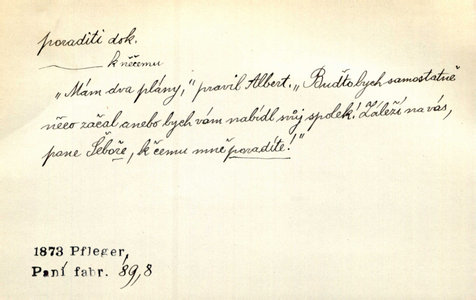 poraditi dok.
k něčemu
„Mám dva plány,“ pravil Albert. „Buďto bych samostatně
něco začal anebo bych vám nabídl svůj spolek! Záleží na vás,
pane Šeboře, k čemu mně poradíte!“
1873 Pfleger,
Paní fabr. 89,8